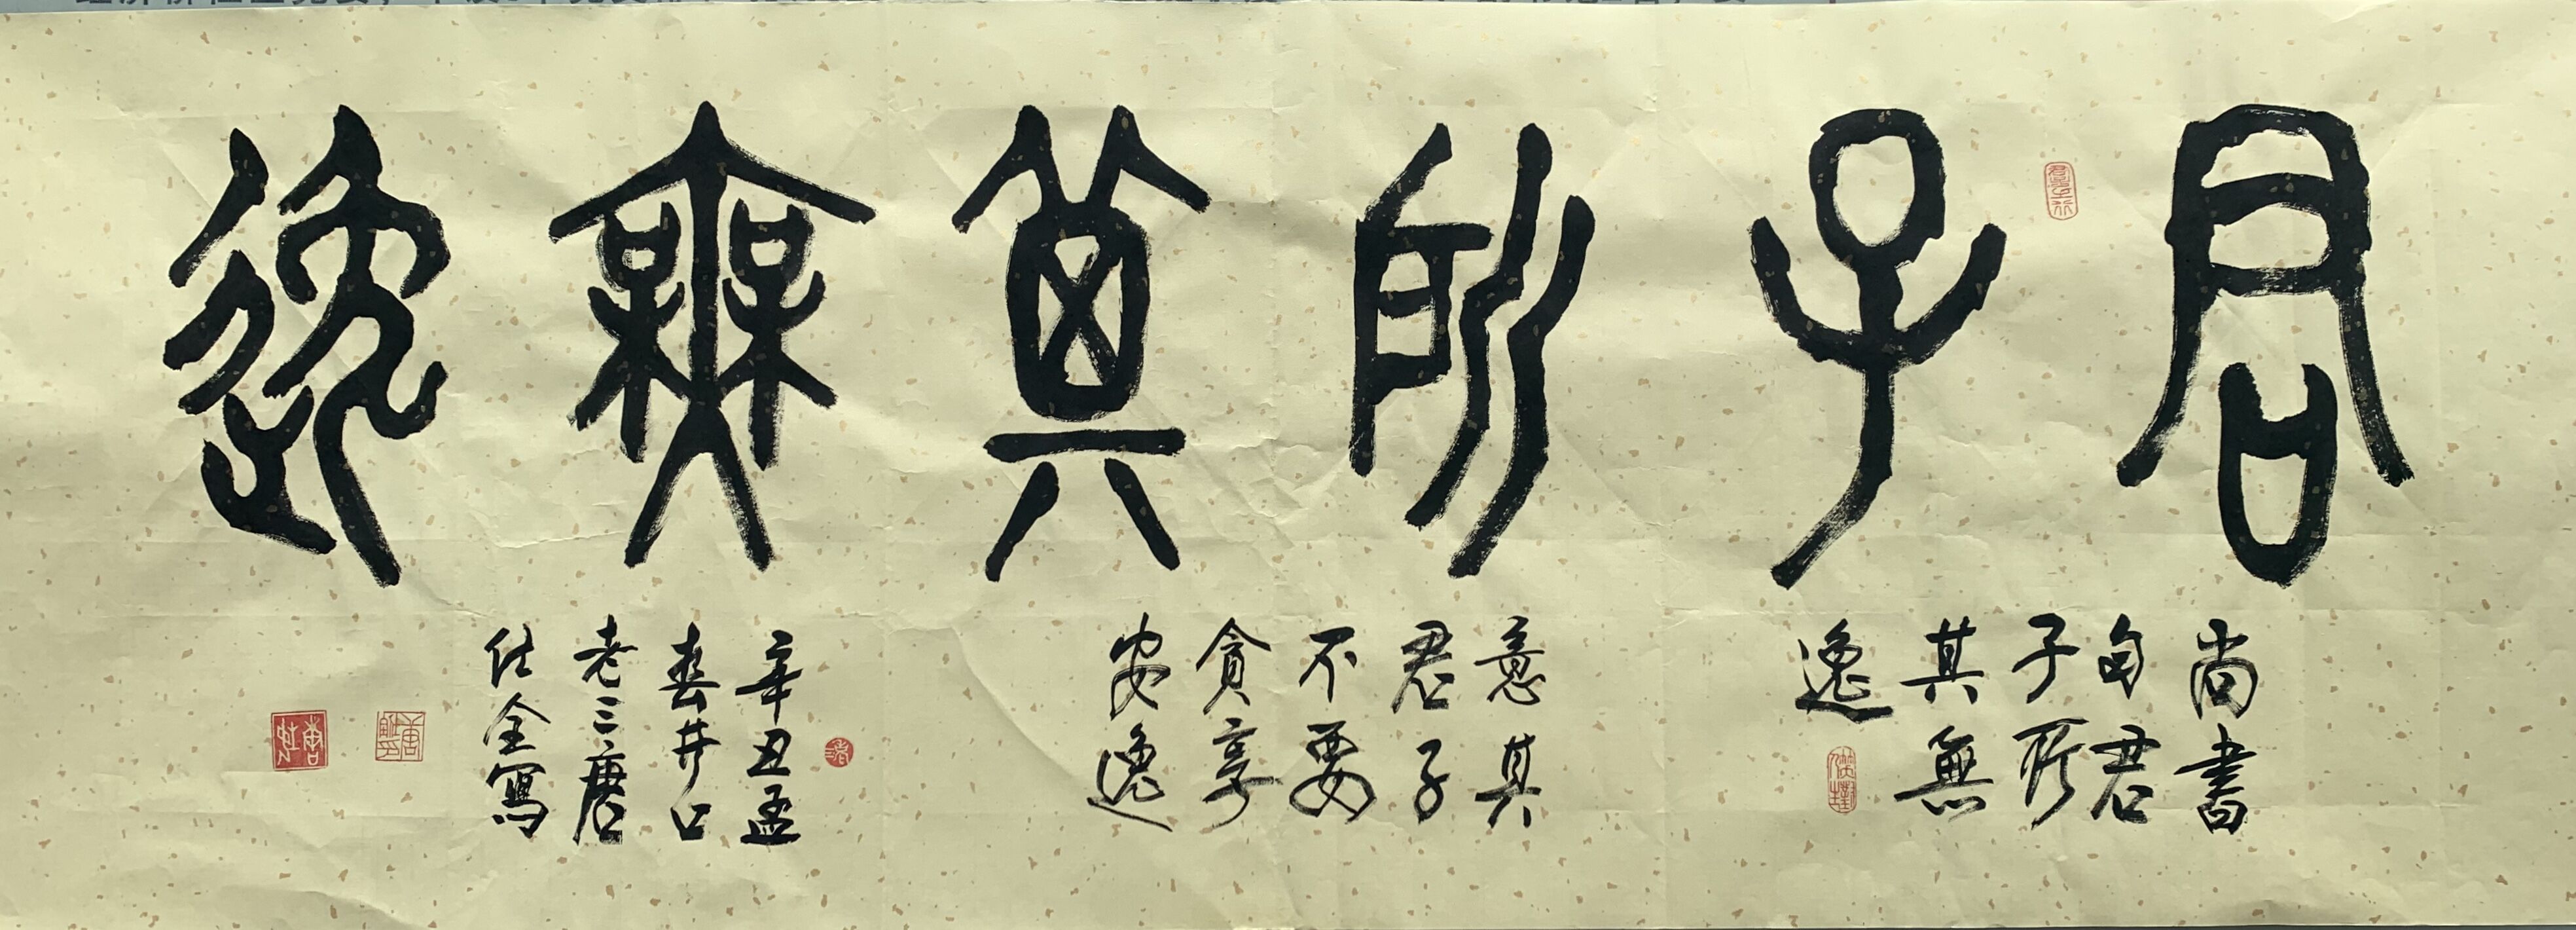 君子所其無逸
尚書
句君
子所
其無
逸
意其
君子
不要
貪享
安逸
辛丑孟
春井口
老三唐
仕全寫